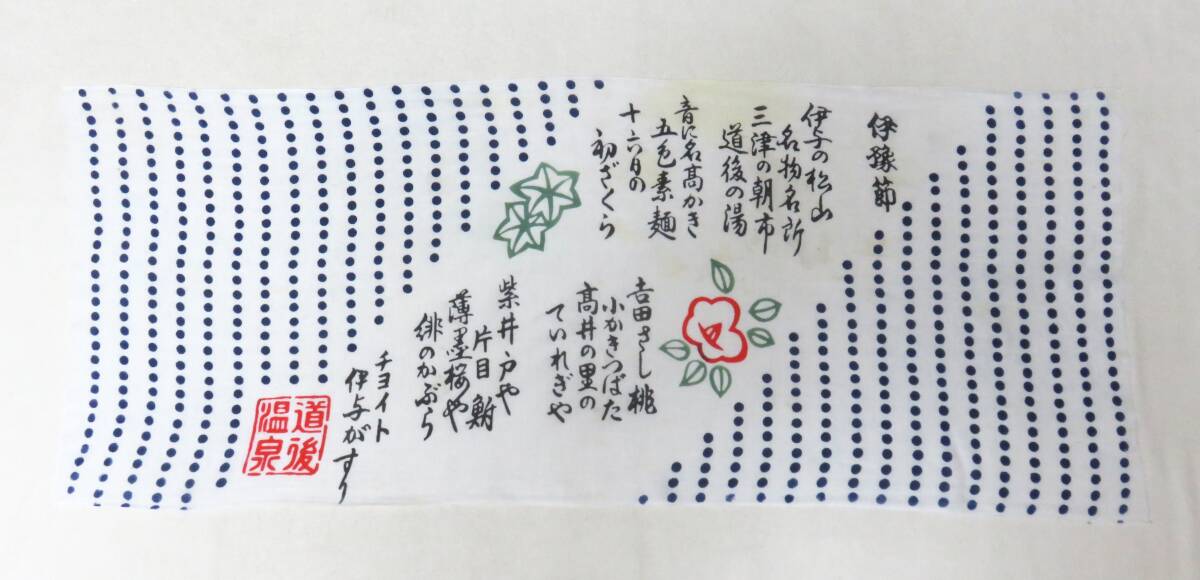 伊豫節
伊予の松山
名物名所
三津の朝市
道後の湯
音に名高かき
五色素麺
十六日の
初ざくら
吉田さし桃
小かきつばた
高井の里の
ていれぎや
紫井戸や
片目鮒
薄墨桜や
緋のかぶら
チョイト
伊与がすり
道後
温泉